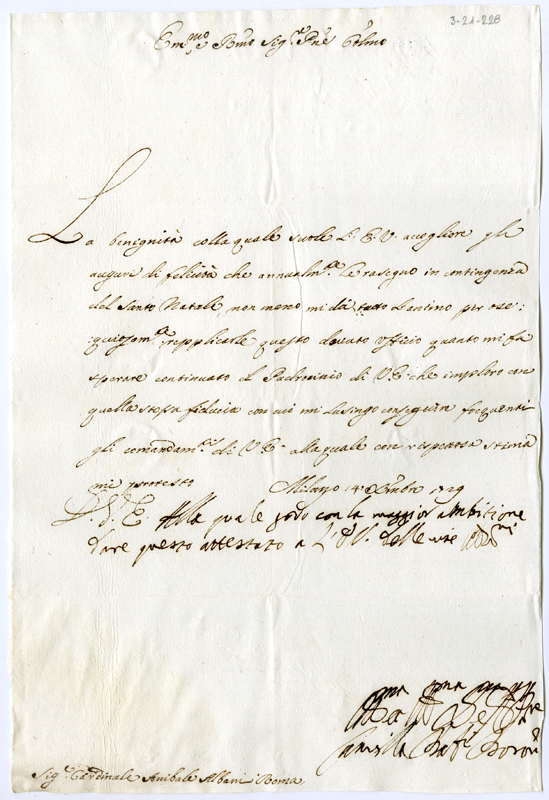 3-21-228
Em.mo e Rmo Sig.r Pne Colmo
La benignità colla quale suole L'E.V. accogliere gli
auguri di felicità che annualm.te Le rasegno in contingenza
del Santo Natale, non meno mi dà tutto l'animo per osse:
:quiosam.te repplicarle questo dovuto Ufficio quanto mi fa
sperare continuato il Padrocinio di V.E. che imploro con
quella stessa fiducia con cui mi lusingo conseguir frequenti
gli comandam.ti di V.E. alla quale con rispettosa stima
mi protesto Milano 14 Xmbre 1729
D. V. E. Alla quale godo con la maggior ambitione
dare questo attestato a L'E.V. delle mie
Camilla
Sig.r Cardinale Anibale Albani Roma